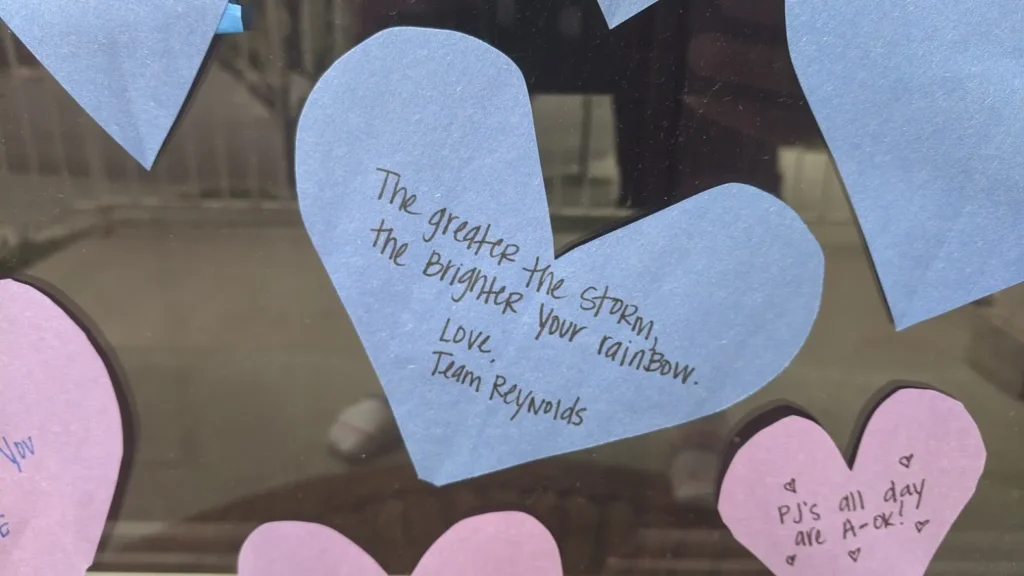 The greater the storm,
the Brighter your rainBow.
Love,
Team Reynolds
You
E
PJ's all day
are A-ok!